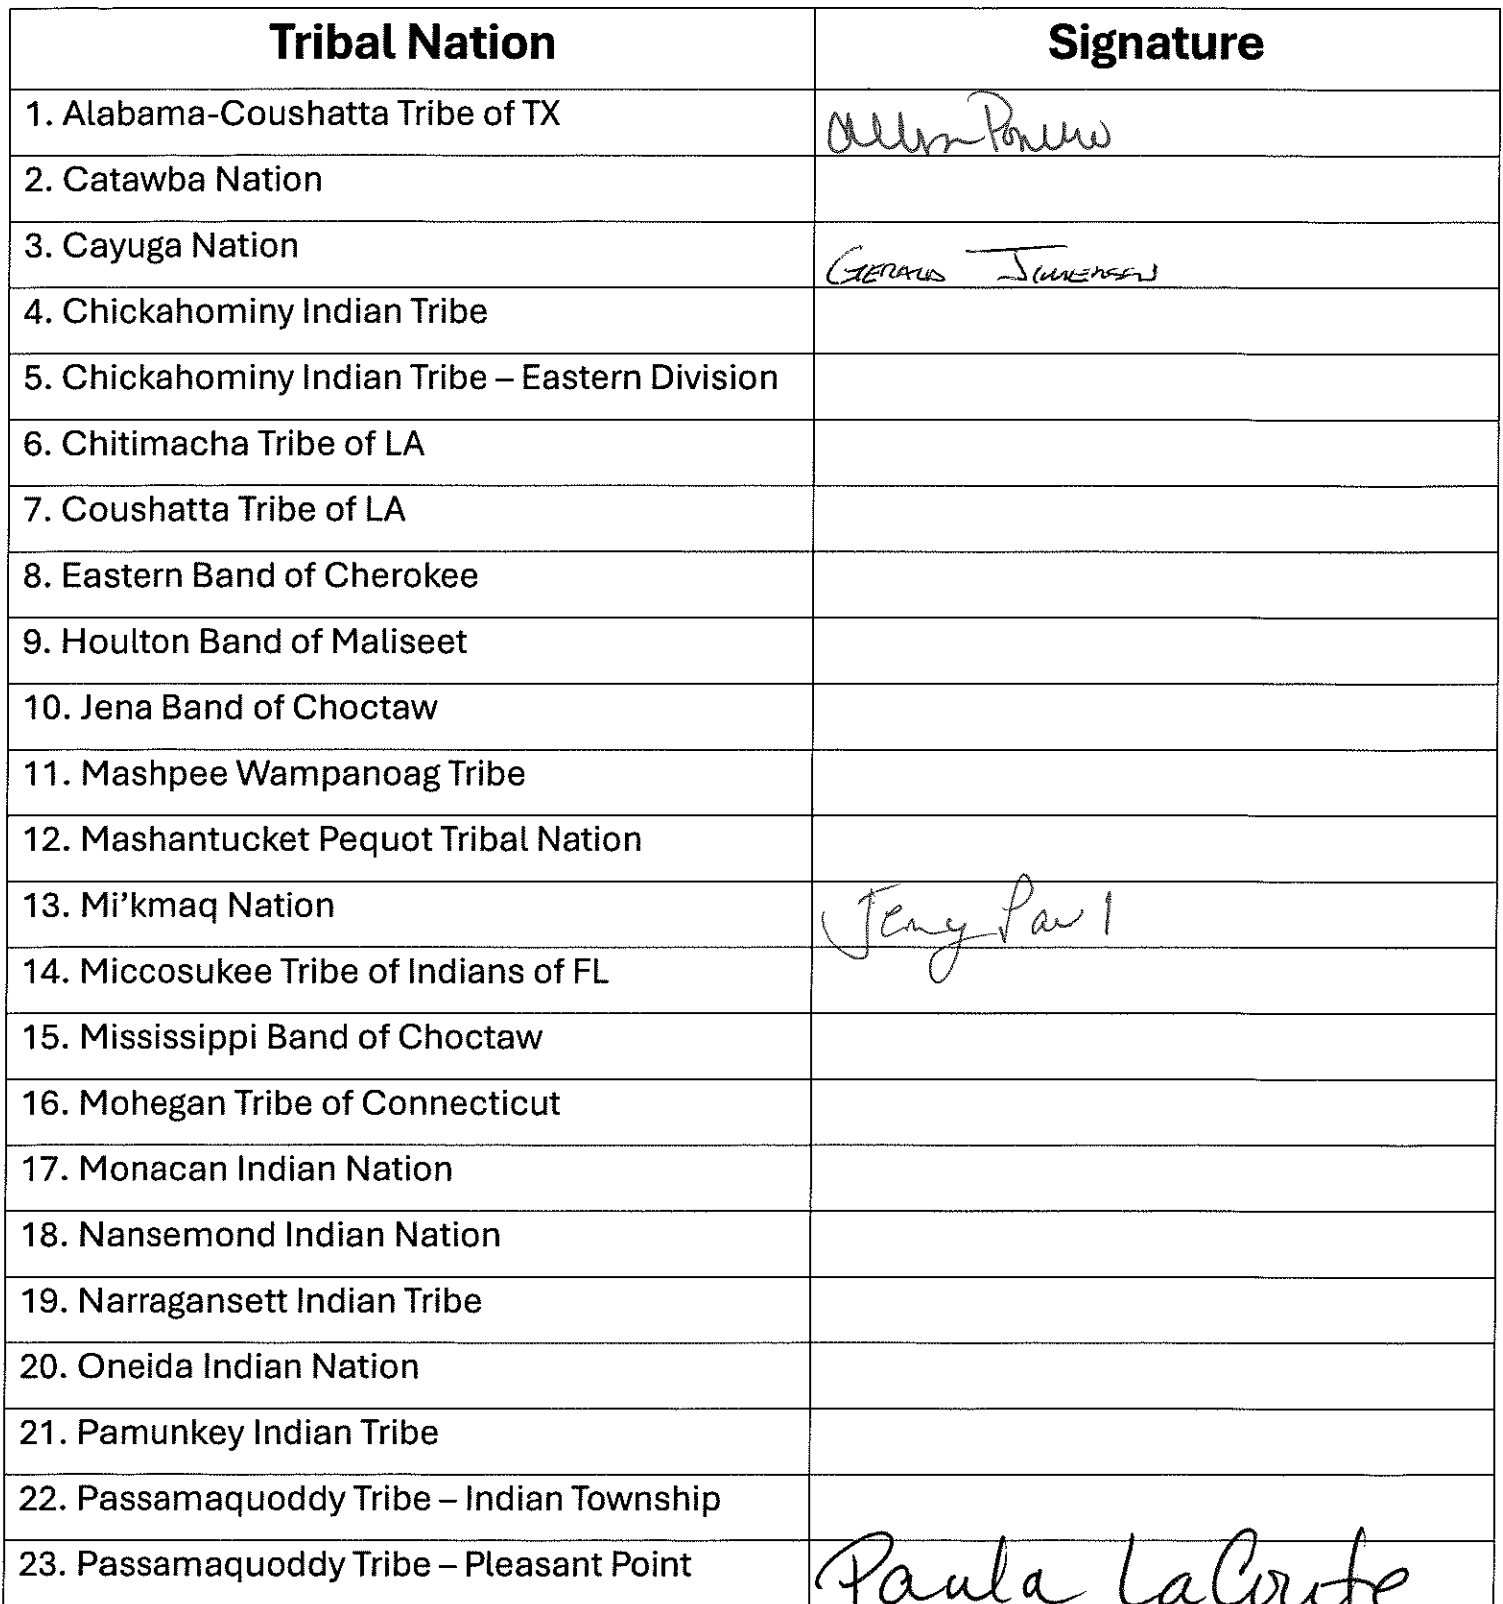 Tribal Nation Signature
1. Alabama-Coushatta Tribe of TX
2. Catawba Nation
3. Cayuga Nation GERALD
4. Chickahominy Indian Tribe
5. Chickahominy Indian Tribe – Eastern Division
6. Chitimacha Tribe of LA
7. Coushatta Tribe of LA
8. Eastern Band of Cherokee
9. Houlton Band of Maliseet
10. Jena Band of Choctaw
11. Mashpee Wampanoag Tribe
12. Mashantucket Pequot Tribal Nation
13. Mi’kmaq Nation Paul
14. Miccosukee Tribe of Indians of FL
15. Mississippi Band of Choctaw
16. Mohegan Tribe of Connecticut
17. Monacan Indian Nation
18. Nansemond Indian Nation
19. Narragansett Indian Tribe
20. Oneida Indian Nation
21. Pamunkey Indian Tribe
22. Passamaquoddy Tribe – Indian Township
23. Passamaquoddy Tribe – Pleasant Point Paula